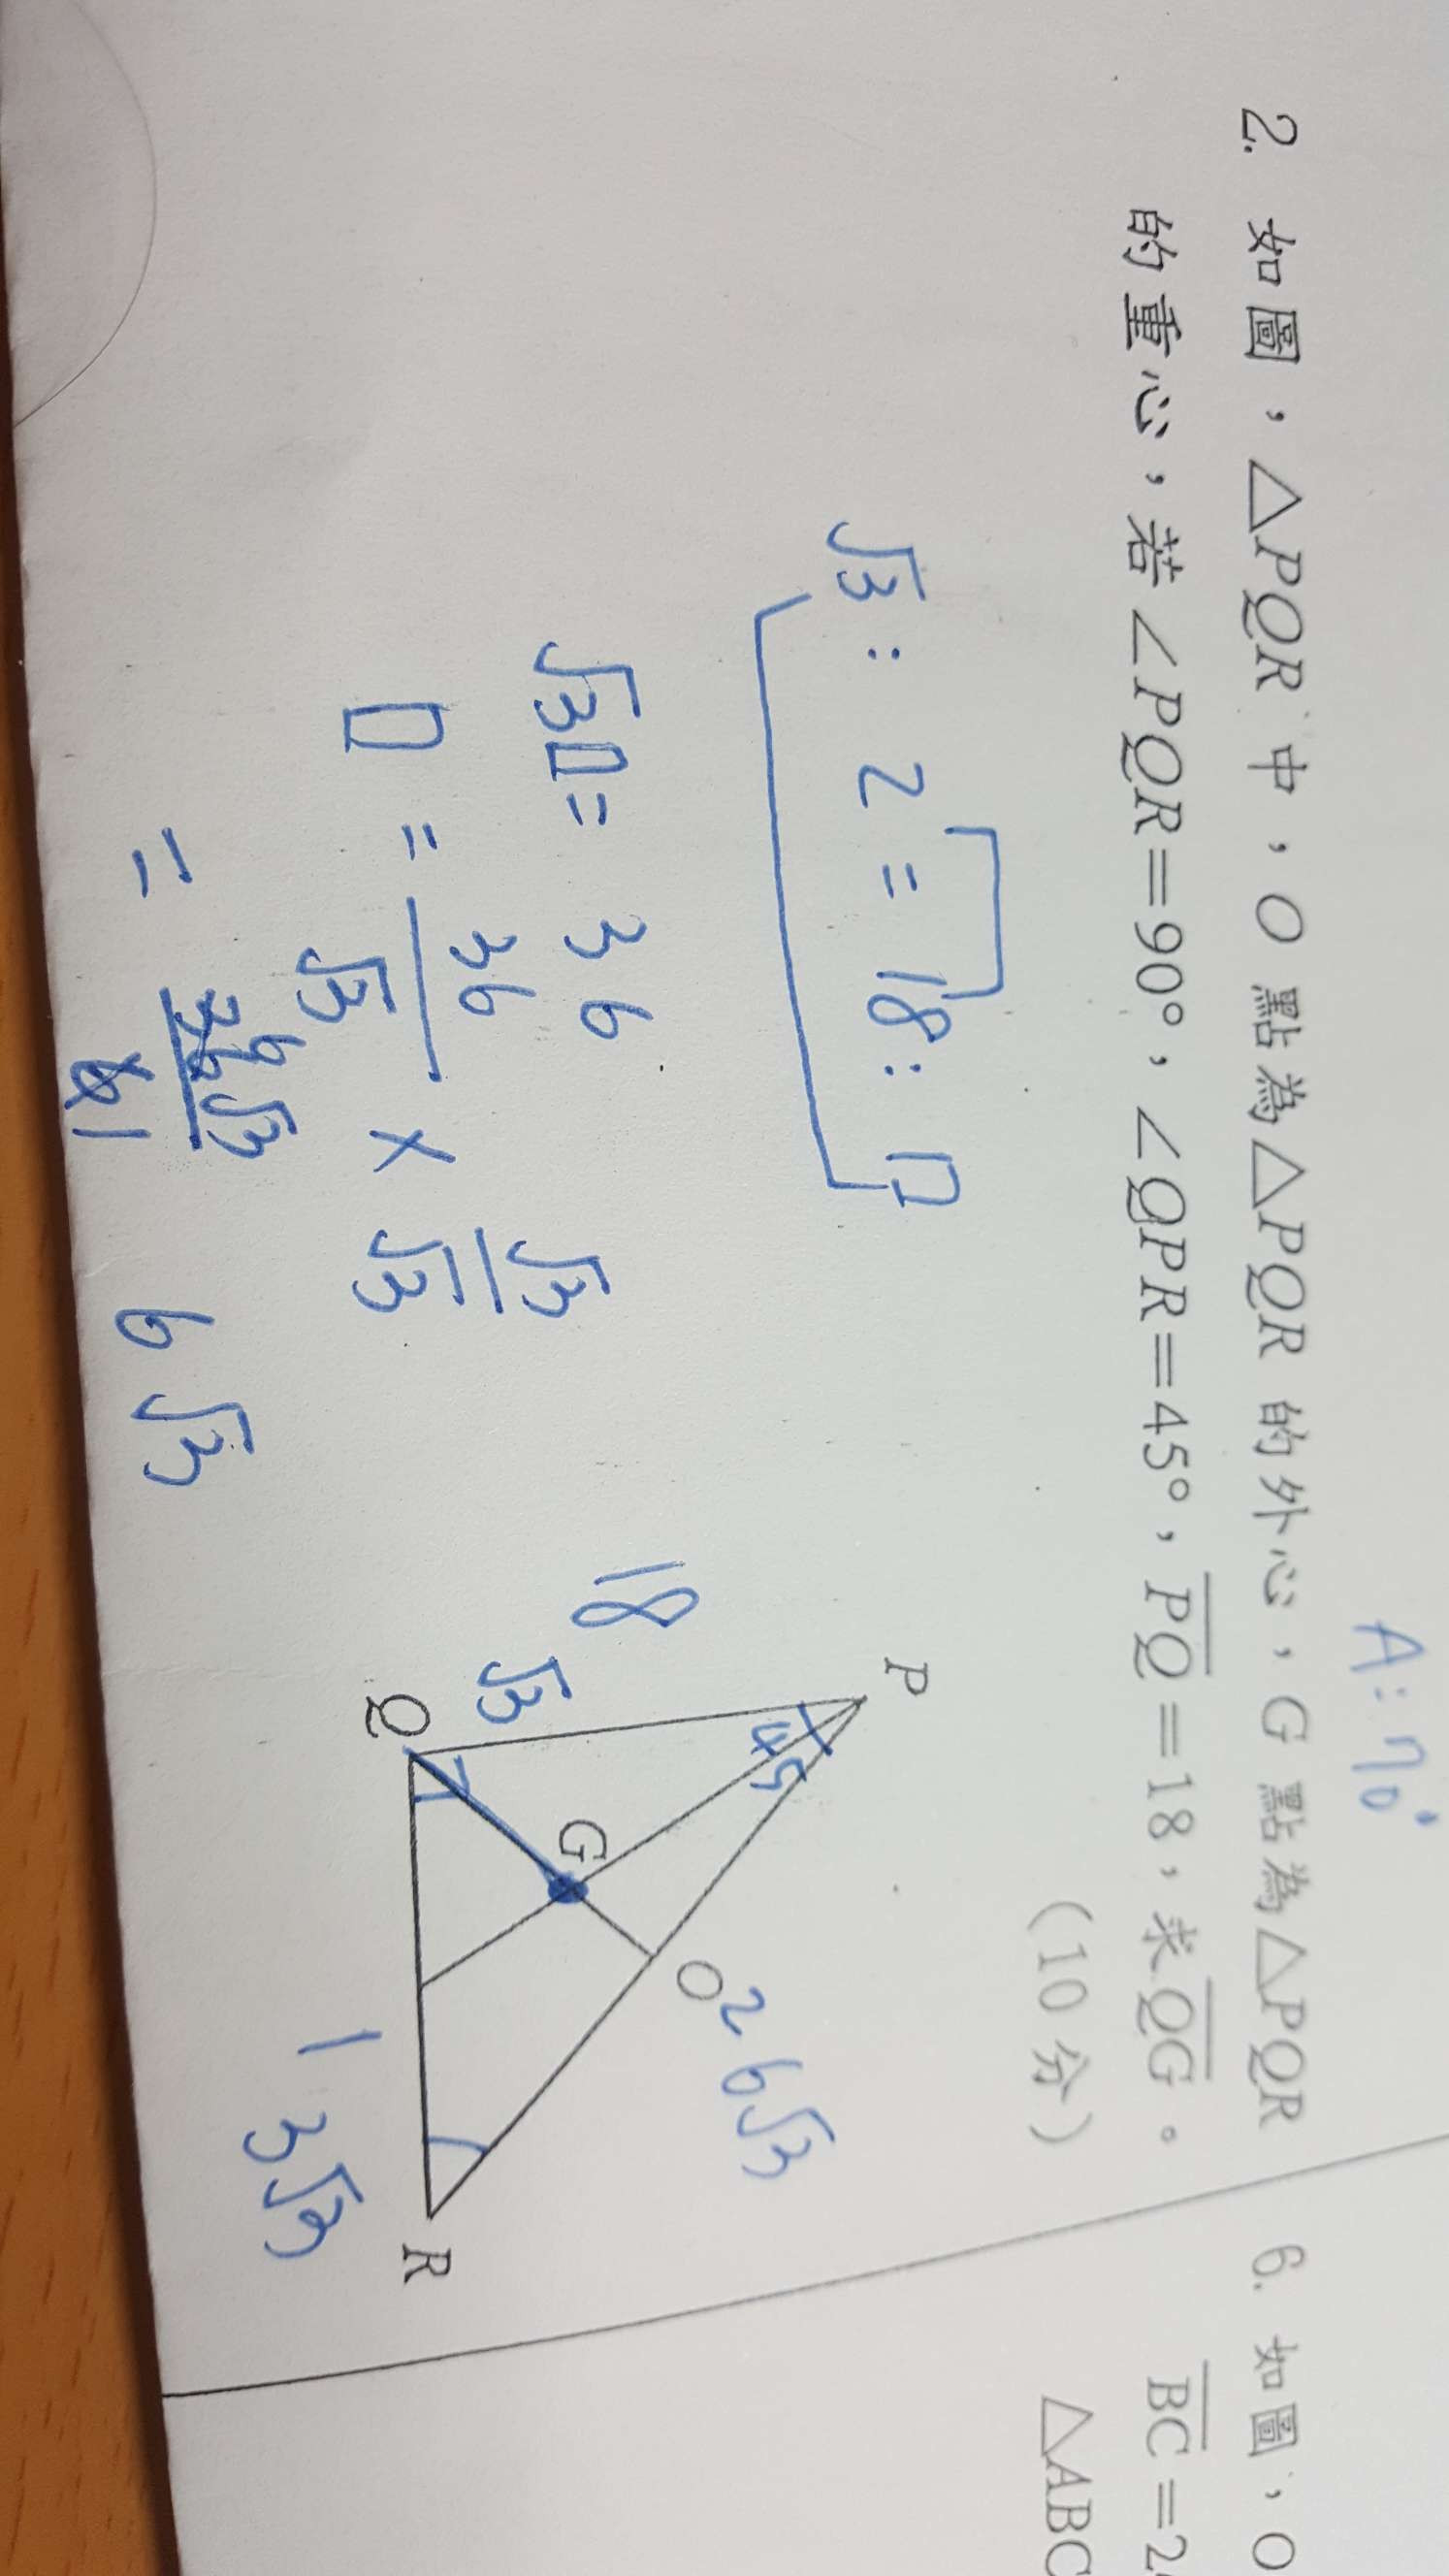 A: 70°
2. 如圖，△PQR 中，O 點為△PQR 的外心，G 點為△PQR
的重心，若∠PQR=90°，∠QPR=45°，PQ=18，求QG。
(10 分)
√3 : 2 = 18 : □
√3□ = 36
□ = 36/√3 × √3/√3
= 36√3
6
6 1
6√3
P
45
18
√3
G
O
2 6√3
Q
R
1 3√3
6. 如圖，O
BC=2
△ABC